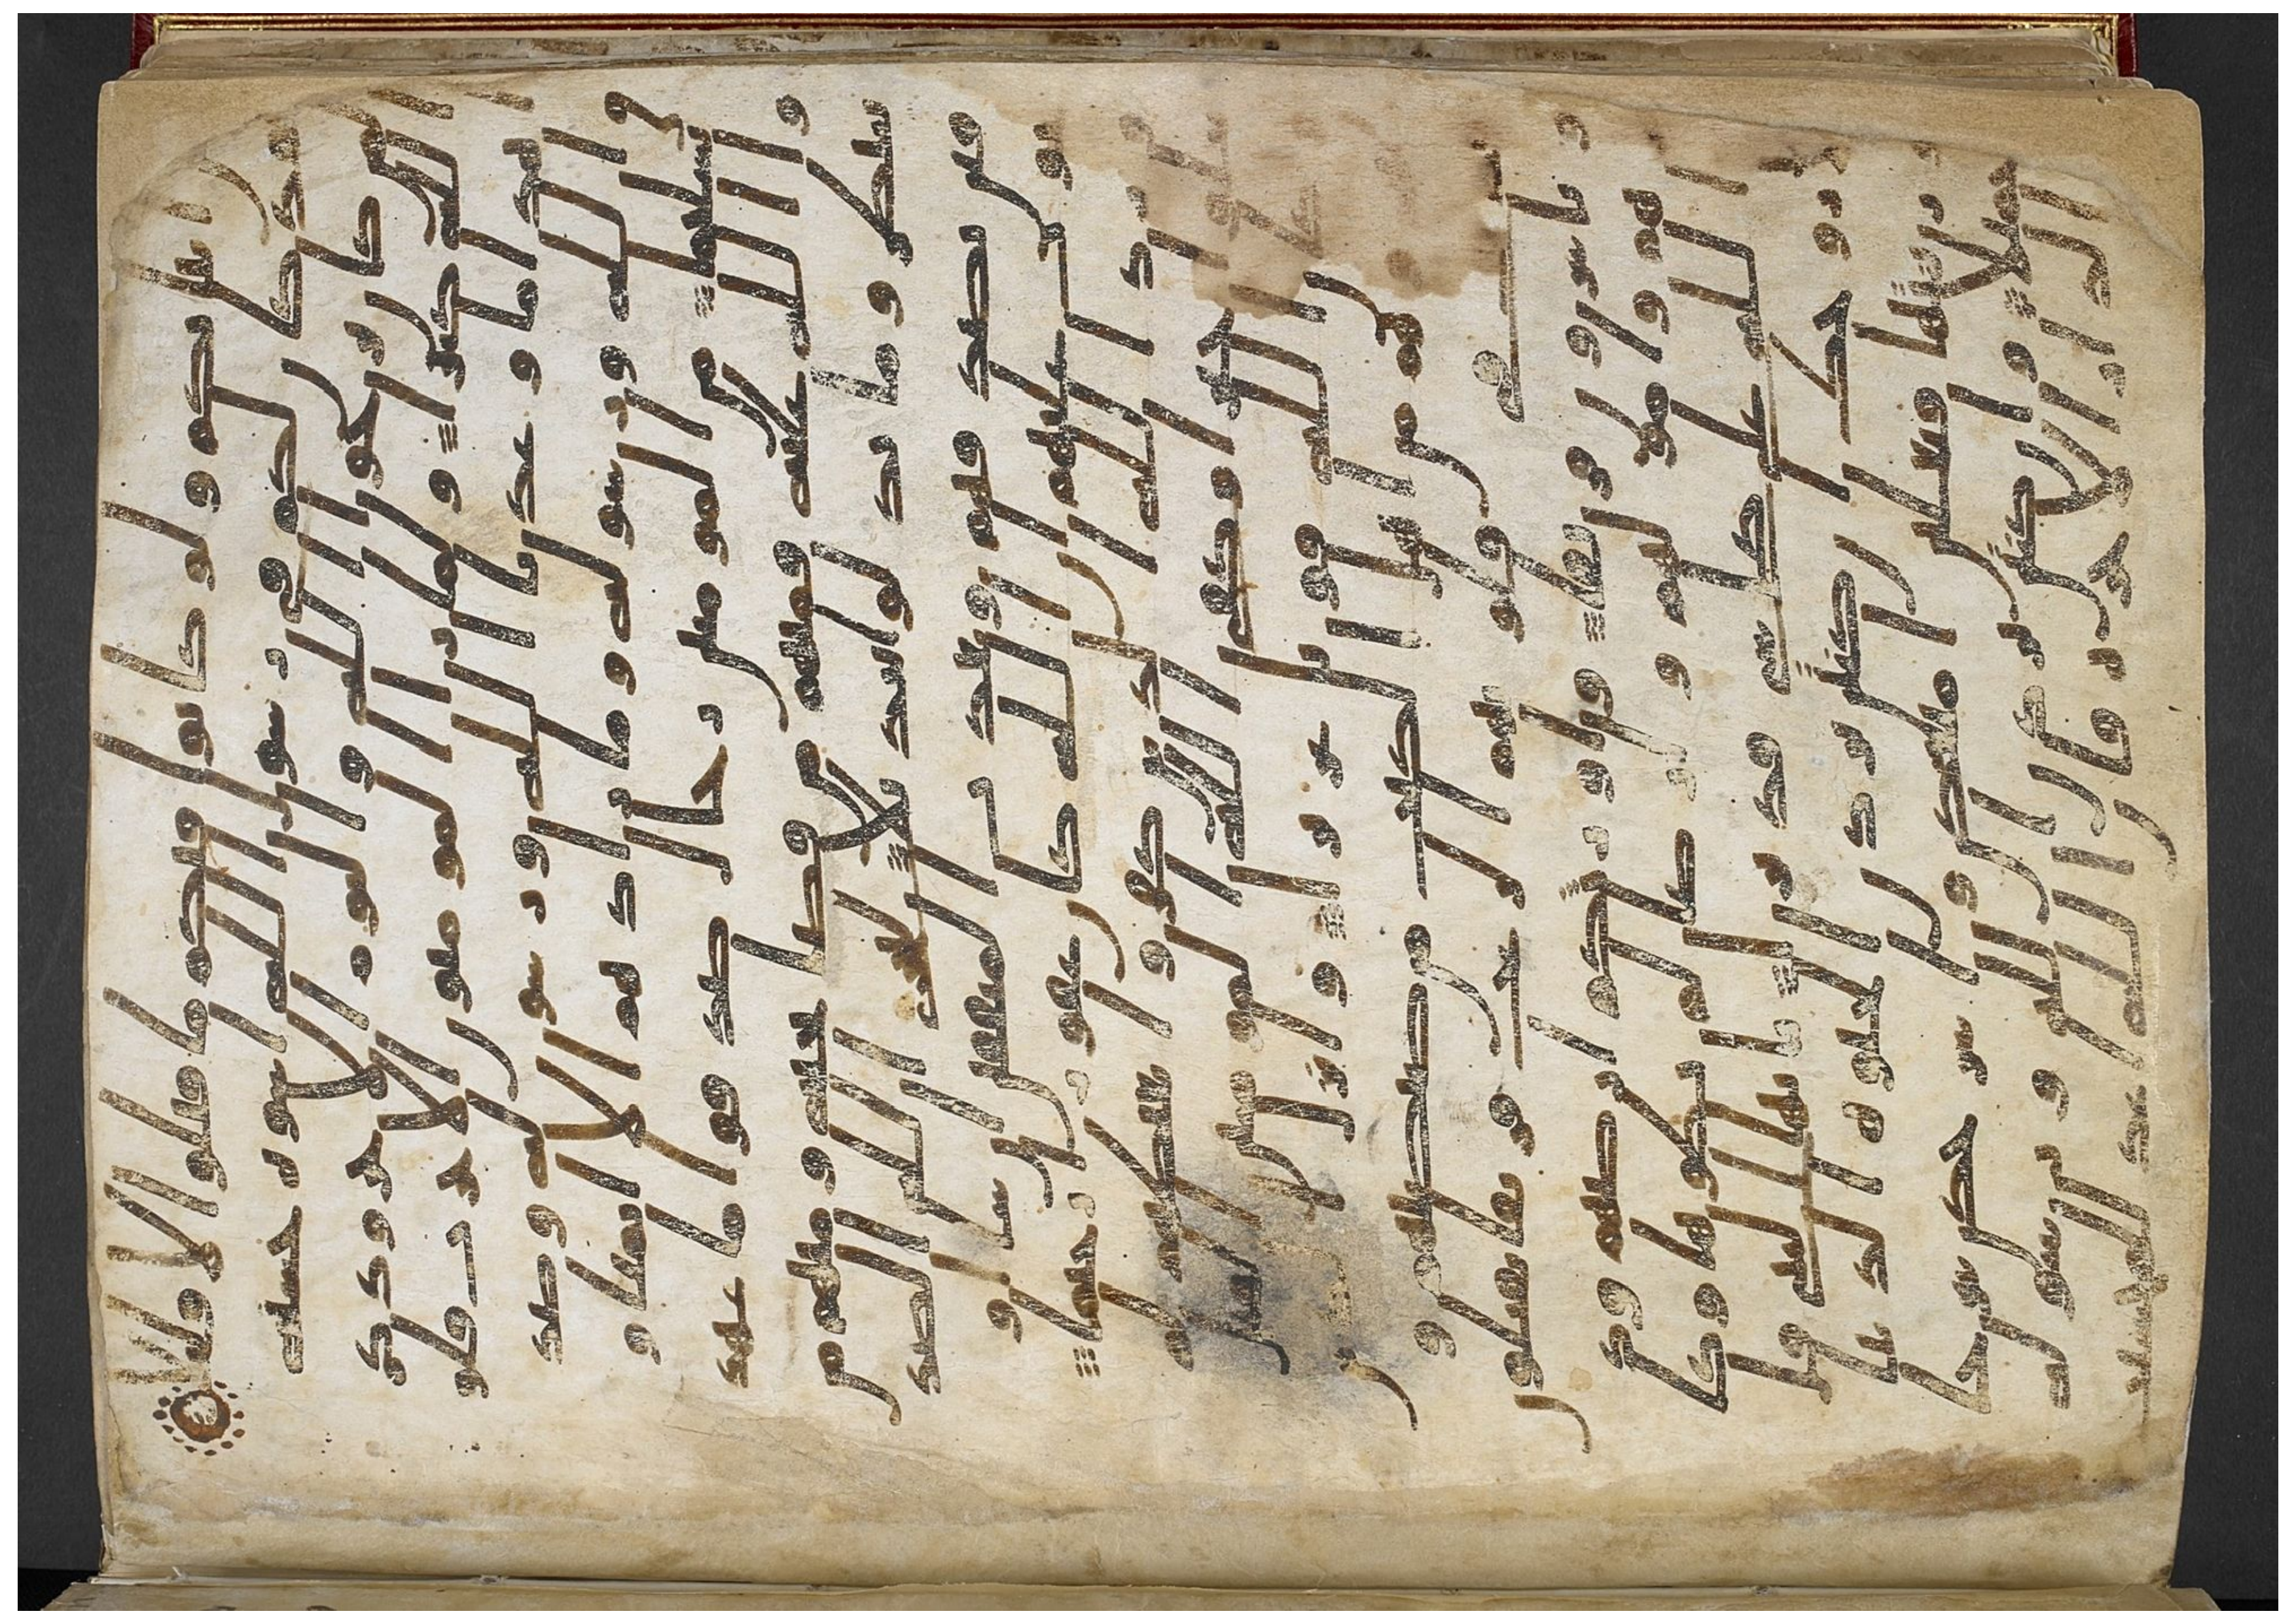 انبايكم ولو كانوا فيكم ما قتلوا الا قليلا
لقد كان لكم في رسول الله اسوة حسنة
لمن كان يرجوا الله واليوم الاخر وذكر
الله كثيرا ولما را المومنون الاحزاب قالوا
هذا ما وعدنا الله ورسوله وصدق
الله ورسوله وما زادهم الا ايمنا و
تسليما من المومنين رجال صدقوا ما عهد
وا الله عليه فمنهم من قضى نحبه ومنهم من
ينتظر وما بدلوا تبديلا ليجزي الله الصد
قين بصدقهم ويعذب المنفقين ان شا او
يتوب عليهم ان الله كان غفورا رحيما
ورد الله الذين كفروا بغيظهم لم
ينالوا خيرا وكفى الله المومنين القتال
وكان الله قويا عزيزا وانزل الذين
ظهروهم من اهل الكتب من صيصيهم و
قذف في قلوبهم الرعب فريقا تقتلون
وتاسرون فريقا واورثكم ارضهم ود
يرهم وامولهم وارضا لم تطوها وكا
ن الله على كل شي قديرا يايها النبي قل
لازوجك ان كنتن تردن الحيوة الدنيا
وزينتها فتعالين امتعكن واسرحكن سرحا
جميلا وان كنتن تردن الله ورسوله
والدار الاخرة فان الله اعد للمحسنت